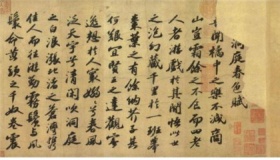 洞庭春色賦
吾聞橘中之樂不減商
山豈霜餘之不食而四老
人者游戲於其間悟此世
之泡幻藏千里於一班舉
棗葉之有餘納芥子其
何艱宜賢王之達觀寄
逸想於人寰嫋嫋兮春風
泛天宇兮清閑吹洞庭
之白浪漲北渚之蒼灣攜
佳人而往游勤霧鬢與風
鬟命黃頭之千奴卷震